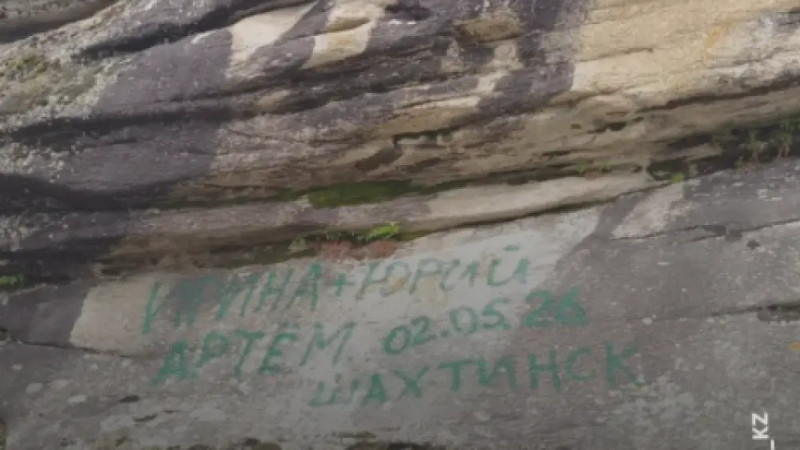 ИРИНА+ЮРИЙ
АРТЁМ 02.05.26
ШАХТИНСК
_KZ